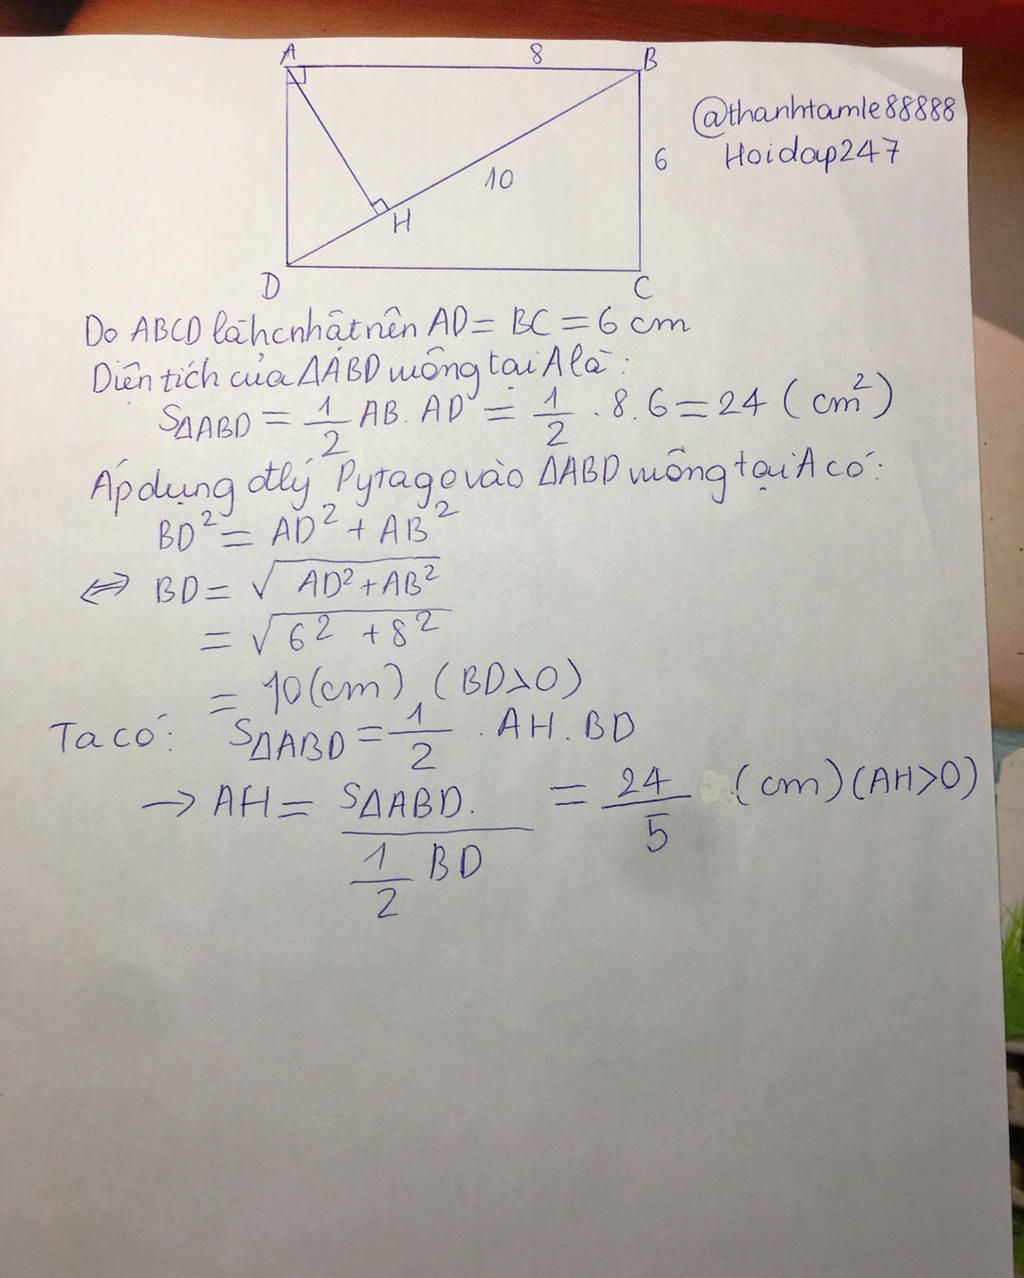 A 8 B
@thanhtamle88888
6 Hoidap247
10
H
D C
Do ABCD là hcnhật nên AD = BC = 6 cm
Diện tích của ΔABD vuông tại A là:
SΔABD = 1/2 AB. AD = 1/2 . 8. 6 = 24 (cm²)
Áp dụng đlý Pytago vào ΔABD vuông tại A có:
BD² = AD² + AB²
⇔ BD = √(AD² + AB²)
= √(6² + 8²)
= 10 (cm) (BD > 0)
Ta có: SΔABD = 1/2 . AH. BD
→ AH = SΔABD. / (1/2 BD) = 24/5 (cm) (AH > 0)